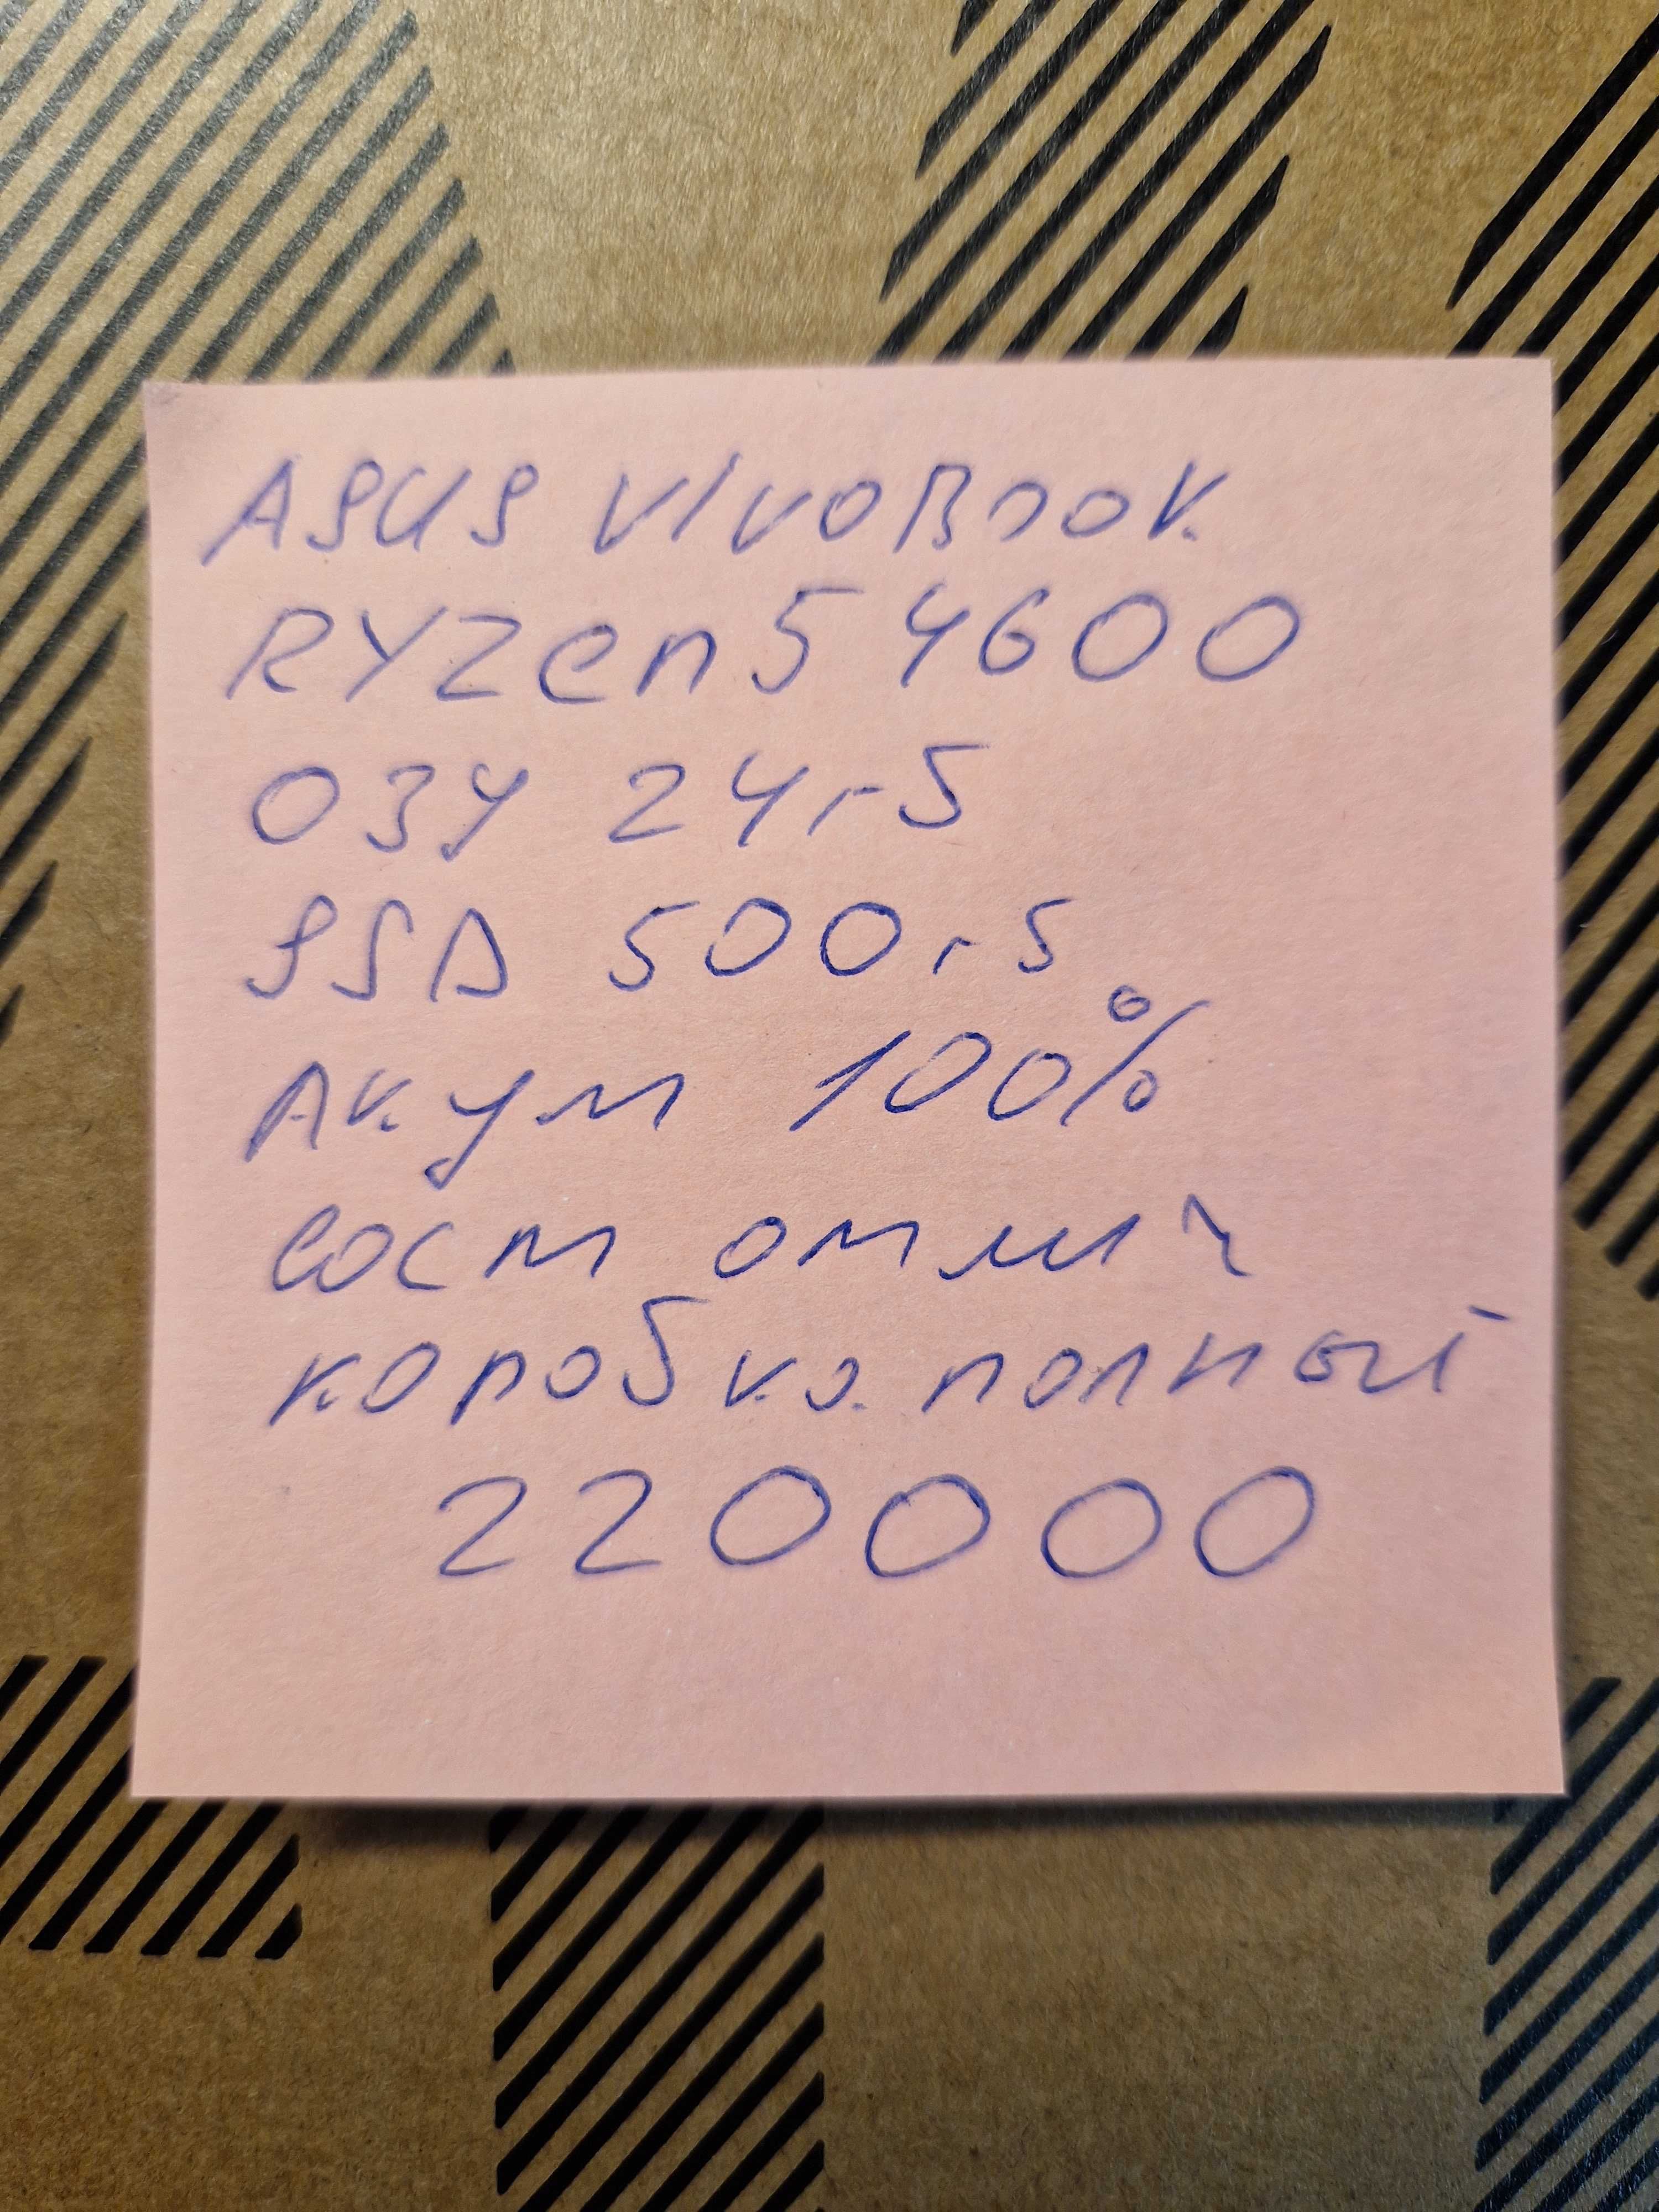 ASUS VIVOBOOK
RYZen 5 4600
ОЗУ 24гб
SSD 500гб
Акум 100%
сост отлич
коробка полный
220000